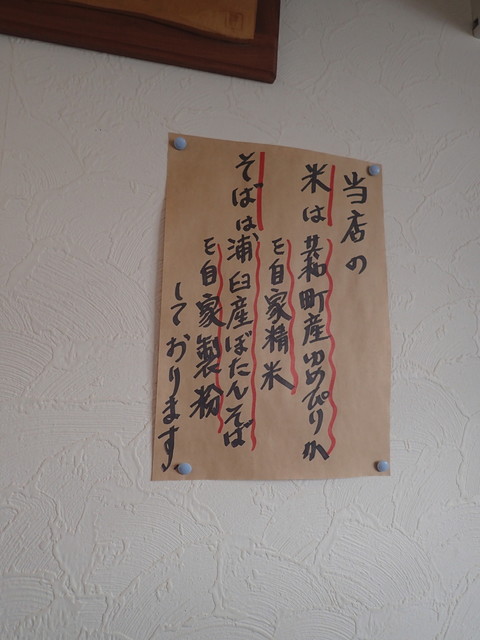 当店の
米は共和町産ゆめぴりか
を自家精米
そばは浦臼産ぼたんそば
を自家製粉
しております